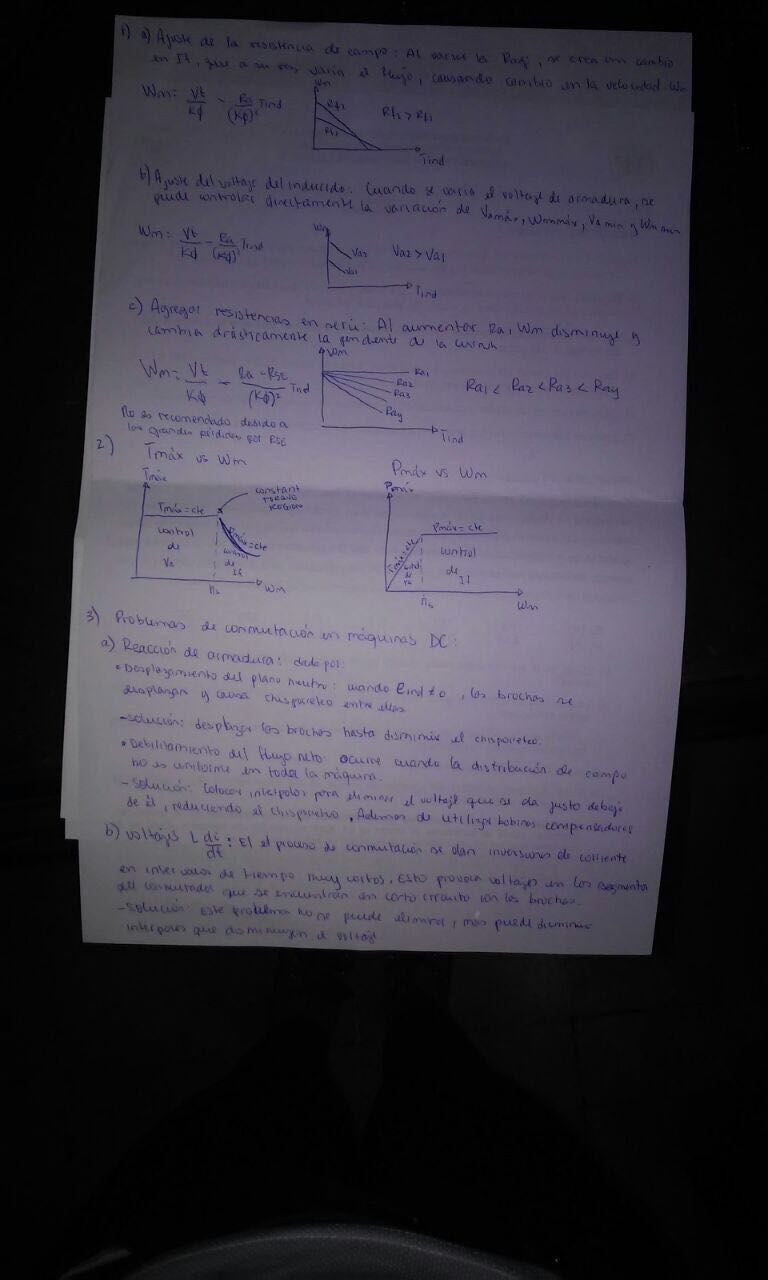 1) a) Ajuste de la resistencia de campo: Al variar la Raj, se crea un cambio
en If, que a su vez varía el flujo, causando cambio en la velocidad Wm
Wm = Vt/Kφ - Ra/(Kφ)² Tind
Wm
Rf2
Rf1
Tind
Rf2 > Rf1
b) Ajuste del voltaje del inducido: Cuando se varía el voltaje de armadura, se
puede controlar directamente la variación de Vamáx, Wmmáx, Va min y Wm min
Wm = Vt/Kφ - Ra/(Kφ)² Tind
Wm
Va2
Va1
Tind
Va2 > Va1
c) Agregar resistencias en serie: Al aumentar Ra, Wm disminuye y
cambia drásticamente la pendiente de la
Wm = Vt/Kφ - Ra - RSE/(Kφ)² Tind
Wm
Ra1
Ra2
Ra3
Ray
Tind
Ra1 < Ra2 < Ra3 < Ray
No es recomendado debido a
las grandes pérdidas por RSE
2) Tmáx vs Wm
Tmáx
Tmáx = cte
constant
TORQUE
REGION
Pmáx = cte
control
de
Va
control
de
If
Wm
Pmáx vs Wm
Pmáx
Tmáx = cte
Pmáx = cte
control
de
If
Wm
3) Problemas de conmutación en máquinas DC:
a) Reacción de armadura: dado por:
• Desplazamiento del plano neutro: cuando eind ≠ 0, las brochas se
desplazan y causa chisporeteo entre ellas
- solución: desplazar las brochas hasta disminuir el chisporeteo.
• Debilitamiento del flujo neto: ocurre cuando la distribución de campo
no es uniforme en toda la máquina.
- Solución: Colocar interpolos para eliminar el voltaje que se da justo debajo
de él, reduciendo el chisporeteo. Ademas de utilizar bobinas compensadoras
b) Voltajes L di/dt: El el proceso de conmutación se dan inversiones de corriente
en intervalos de tiempo muy cortos. Esto provoca voltajes en los segmentos
del conmutador que se encuentran en corto circuito con las brochas.
- Solución: Este problema no se puede eliminar, mas puede disminuir
interpolos que disminuyen el voltaje